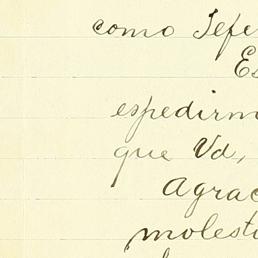 como Jefe
Es
espedirm
que Vd,
Agrac
molesti